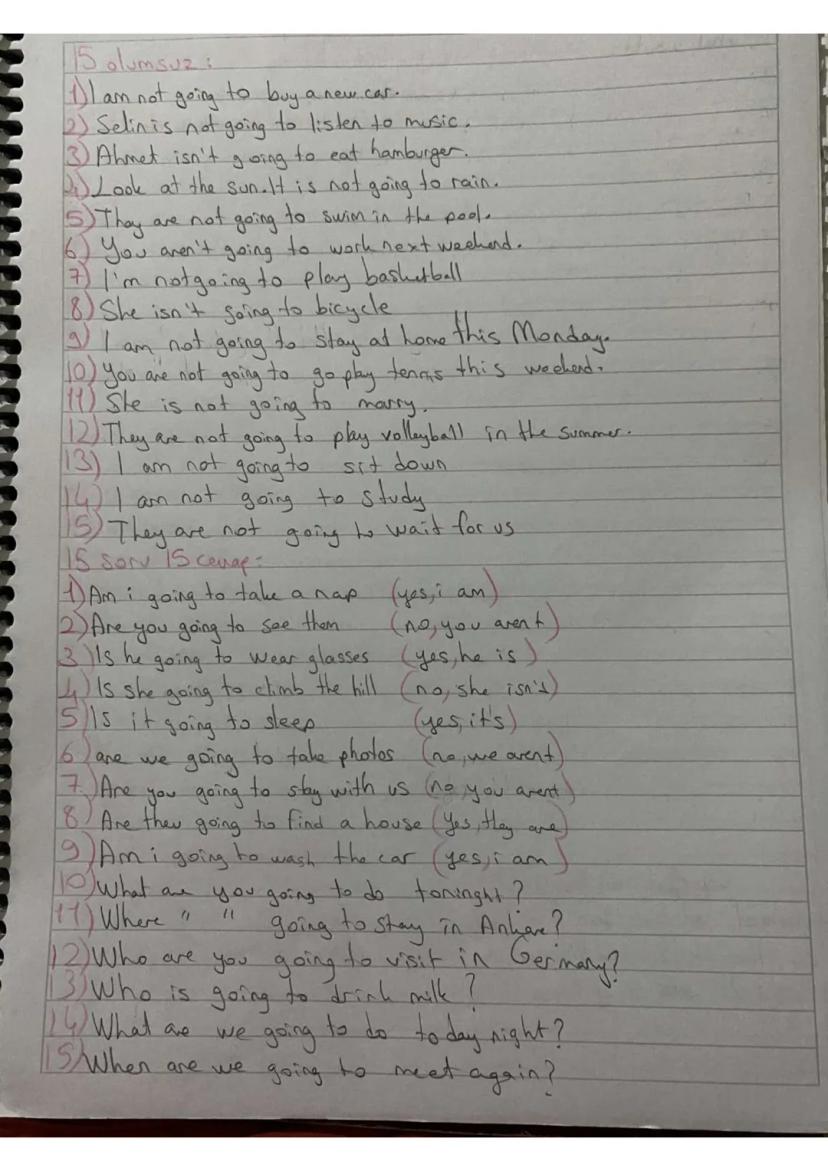 15 olumsuz:
1) I am not going to buy a new car.
2) Selin is not going to listen to music.
3) Ahmet isn't going to eat hamburger.
4) Look at the sun. It is not going to rain.
5) They are not going to swim in the pool.
6) You aren't going to work next weekend.
7) I'm not going to play basketball
8) She isn't going to bicycle
9) I am not going to stay at home this Monday.
10) You are not going to go play tennis this weekend.
11) She is not going to marry.
12) They are not going to play volleyball in the summer.
13) I am not going to sit down
14) I am not going to study
15) They are not going to wait for us
15 soru 15 cevap:
1) Am i going to take a nap (yes, i am)
2) Are you going to see them (no, you arent)
3) Is he going to wear glasses (yes, he is)
4) Is she going to climb the hill (no, she isn's)
5) Is it going to sleep (yes, it's)
6) are we going to take photos (no, we arent)
7) Are you going to stay with us (no you arent)
8) Are they going to find a house (yes, they are)
9) Am i going to wash the car (yes, i am)
10) What are you going to do toninght?
11) Where " " going to stay in Ankara?
12) Who are you going to visit in Germany?
13) Who is going to drink milk?
14) What are we going to do today night?
15) When are we going to meet again?